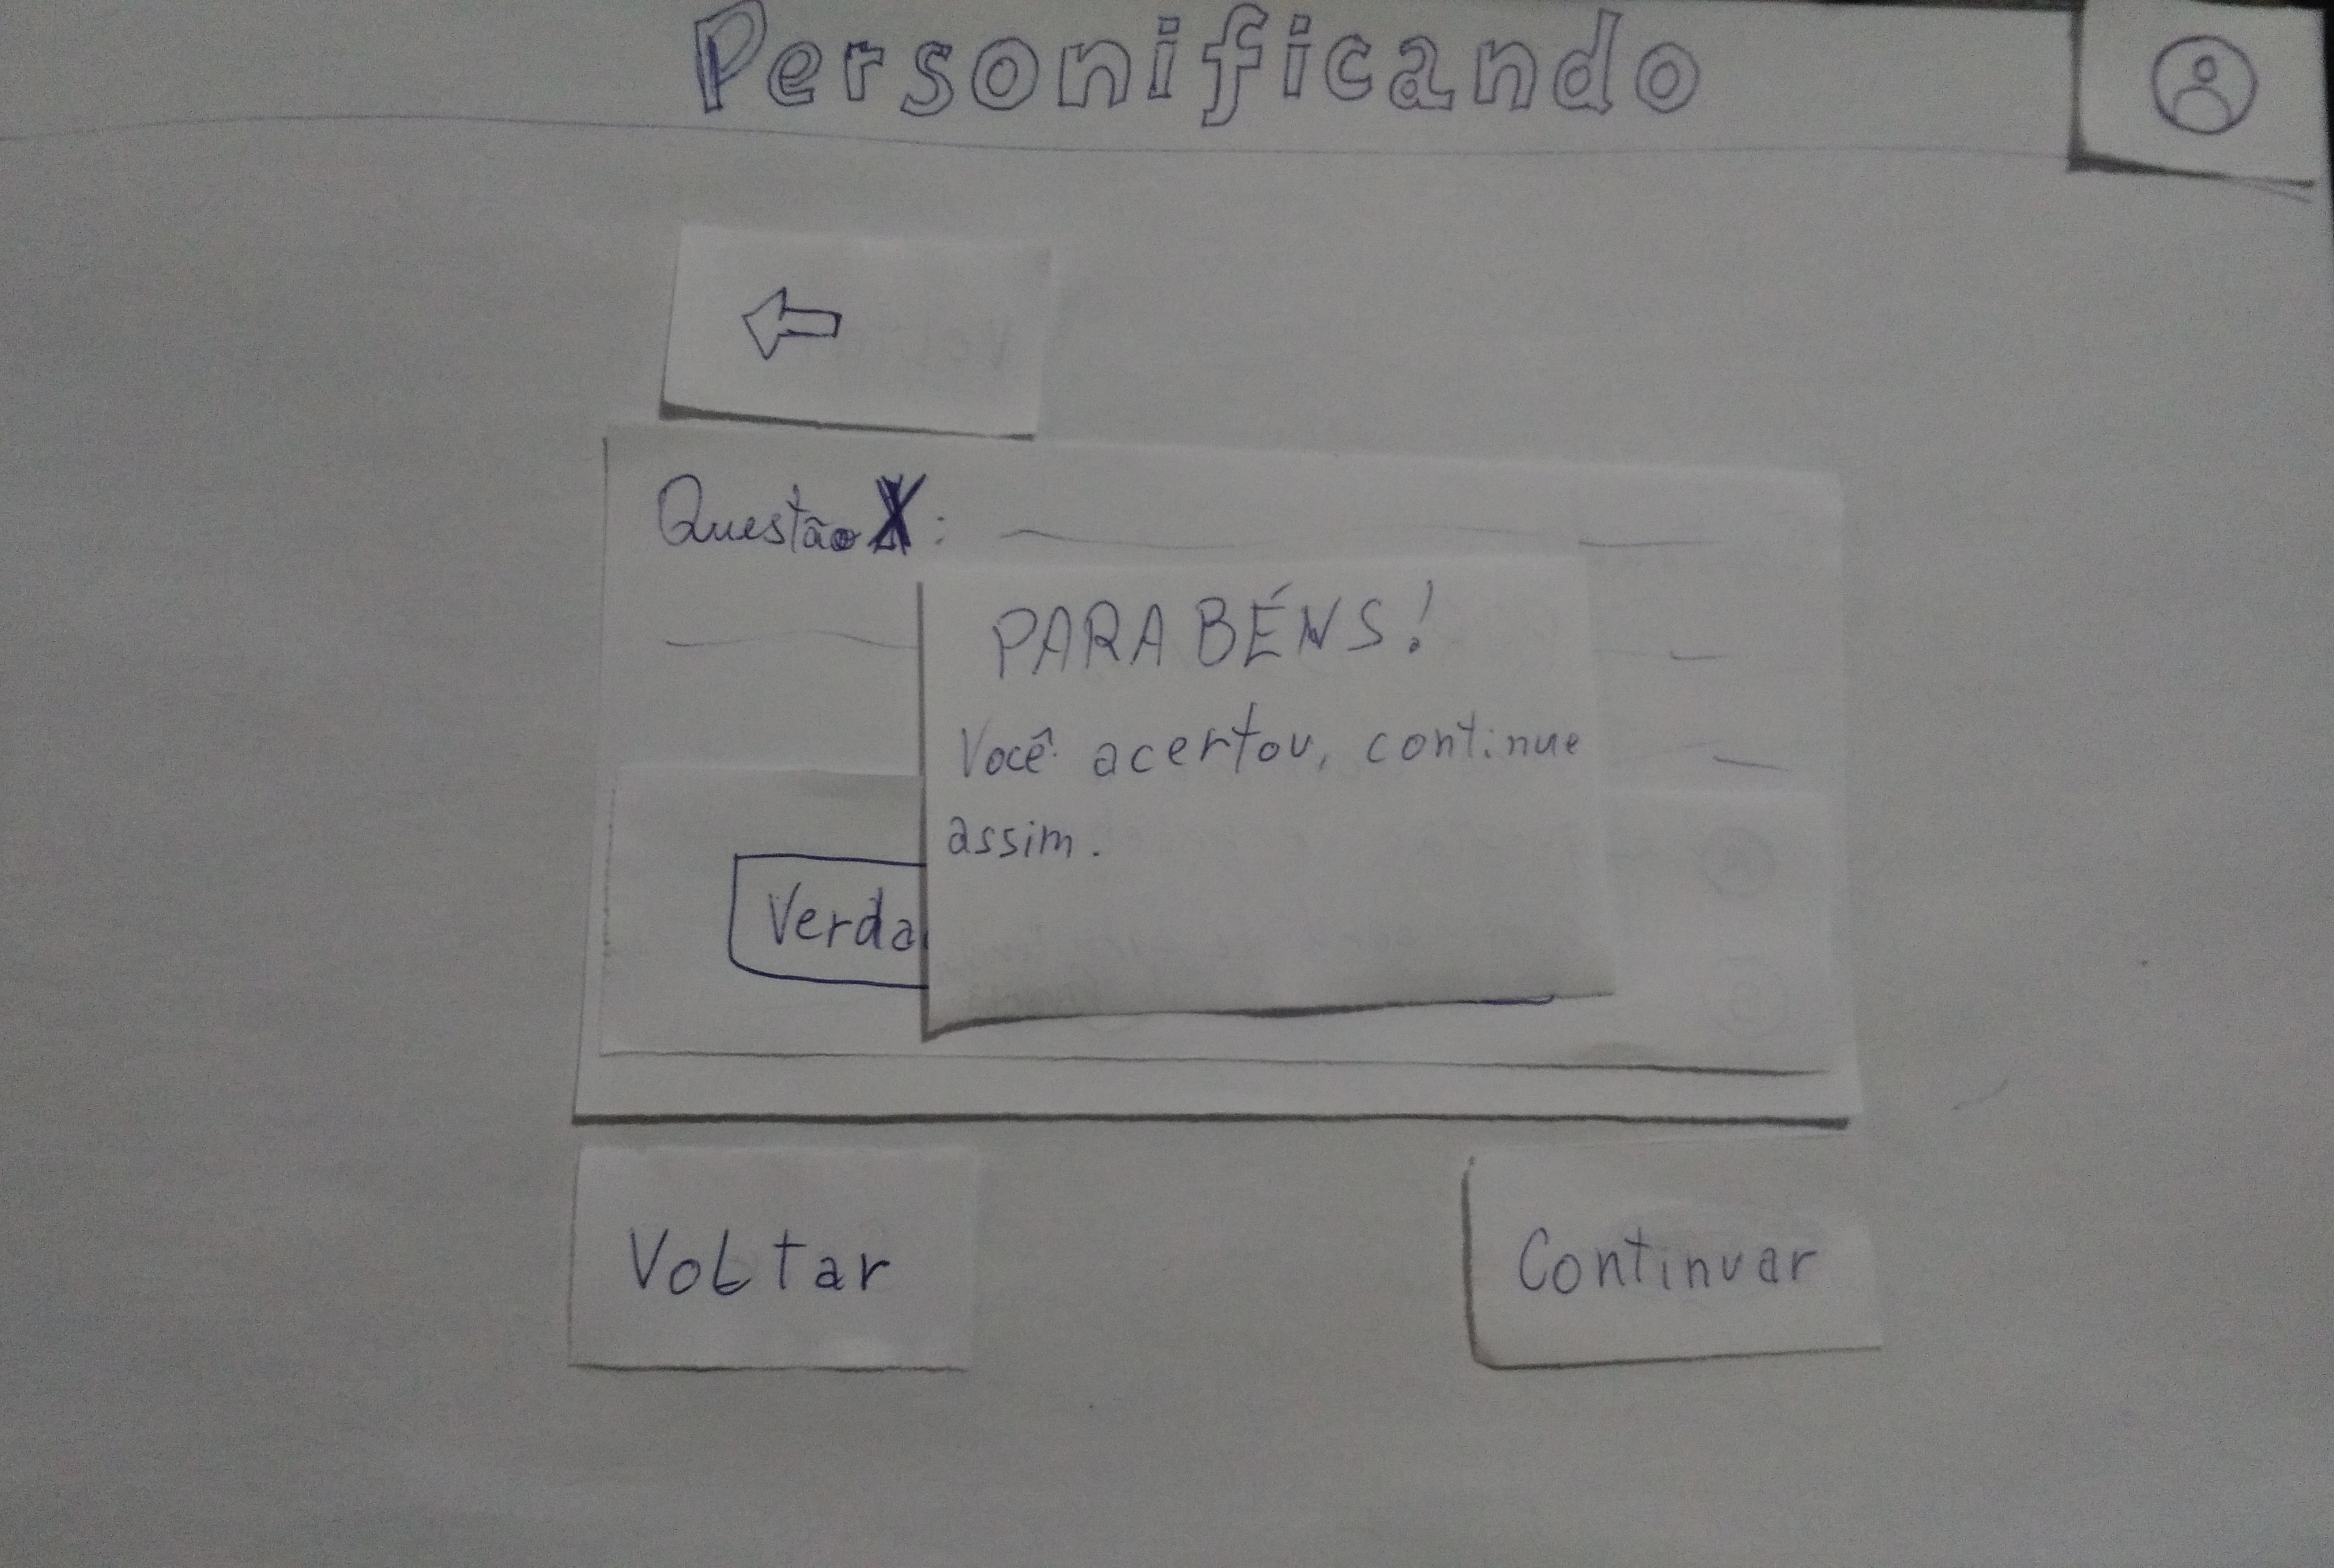 Personificando
Questão X:
PARABÉNS!
Você acertou, continue
assim.
Verda
Voltar
Continuar